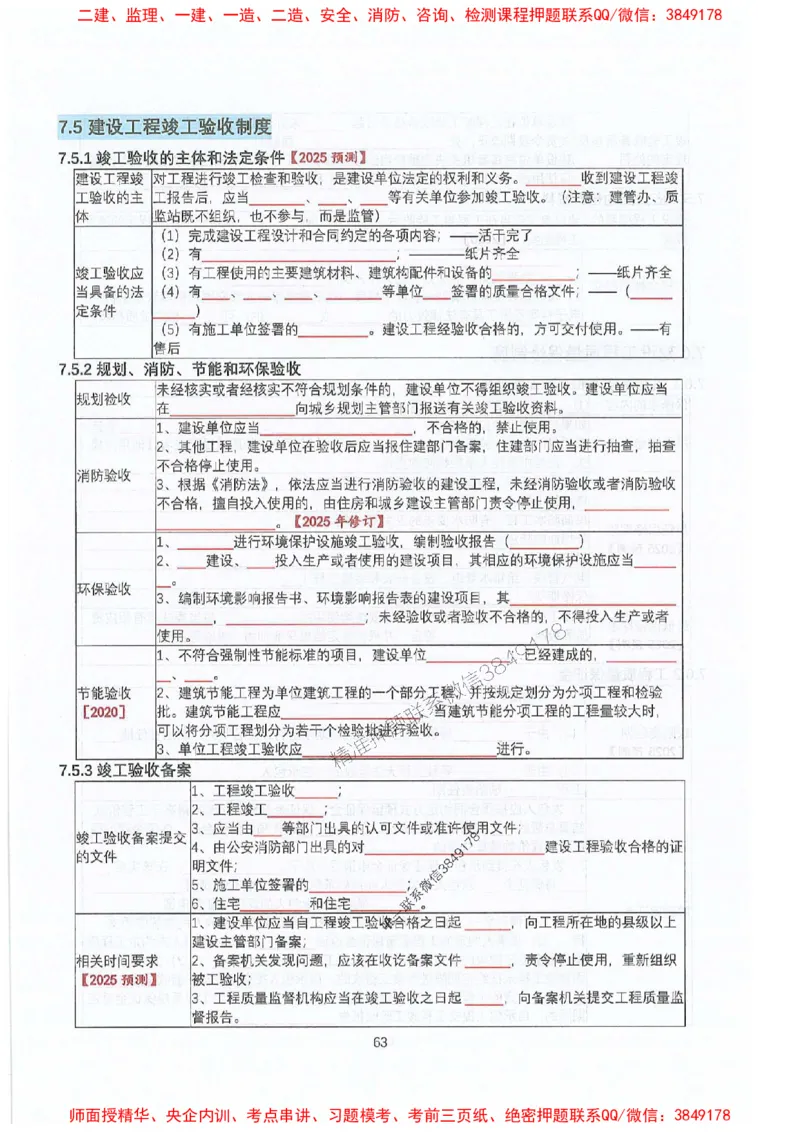 二建、监理、一建、一造、二造、安全、消防、咨询、检测课程押题联系QQ/微信：3849178
7.5 建设工程竣工验收制度
7.5.1 竣工验收的主体和法定条件【2025 预测】
建设工程竣工验收的主体
对工程进行竣工检查和验收，是建设单位法定的权利和义务。______收到建设工程竣
工报告后，应当______、____、____等有关单位参加竣工验收。（注意：建管办、质
监站既不组织，也不参与，而是监管）
竣工验收应当具备的法定条件
（1）完成建设工程设计和合同约定的各项内容；——活干完了
（2）有____________________；————纸片齐全
（3）有工程使用的主要建筑材料、建筑构配件和设备的_________；——纸片齐全
（4）有___、____、____、_____等单位___签署的质量合格文件；——（____
____）
（5）有施工单位签署的________。建设工程经验收合格的，方可交付使用。——有
售后
7.5.2 规划、消防、节能和环保验收
规划验收
未经核实或者经核实不符合规划条件的，建设单位不得组织竣工验收。建设单位应当
在______________向城乡规划主管部门报送有关竣工验收资料。
消防验收
1、建设单位应当________________，不合格的，禁止使用。
2、其他工程，建设单位在验收后应当报住建部门备案，住建部门应当进行抽查，抽查
不合格停止使用。
3、根据《消防法》，依法应当进行消防验收的建设工程，未经消防验收或者消防验收
不合格，擅自投入使用的，由住房和城乡建设主管部门责令停止使用，__________
____________。【2025 年修订】
环保验收
1、______进行环境保护设施竣工验收，编制验收报告（________）
2、_____建设、___投入生产或者使用的建设项目，其相应的环境保护设施应当____
_。
3、编制环境影响报告书、环境影响报告表的建设项目，其__________________
______，________________；未经验收或者验收不合格的，不得投入生产或者
使用。
节能验收
［2020］
1、不符合强制性节能标准的项目，建设单位__________，已经建成的，_______
_、___。
2、建筑节能工程为单位建筑工程的一个部分工程，并按规定划分为分项工程和检验
批。建筑节能工程应________________，当建筑节能分项工程的工程量较大时，
可以将分项工程划分为若干个检验批进行验收。
3、单位工程竣工验收应_____________________进行。
精准押题联系微信3849178
7.5.3 竣工验收备案
竣工验收备案提交的文件
1、工程竣工验收_____；
2、工程竣工______；
3、应当由___等部门出具的认可文件或准许使用文件；
4、由公安消防部门出具的对____________________建设工程验收合格的证
明文件；
5、施工单位签署的__________；
6、住宅_______和住宅_______。
相关时间要求
【2025 预测】
1、建设单位应当自工程竣工验收合格之日起_____，向工程所在地的县级以上
建设主管部门备案；
2、备案机关发现问题，应该在收讫备案文件_____，责令停止使用，重新组织
被工验收；
3、工程质量监督机构应当在竣工验收之日起____，向备案机关提交工程质量监
督报告。
联系微信3849178
63
师面授精华、央企内训、考点串讲、习题模考、考前三页纸、绝密押题联系QQ/微信：3849178